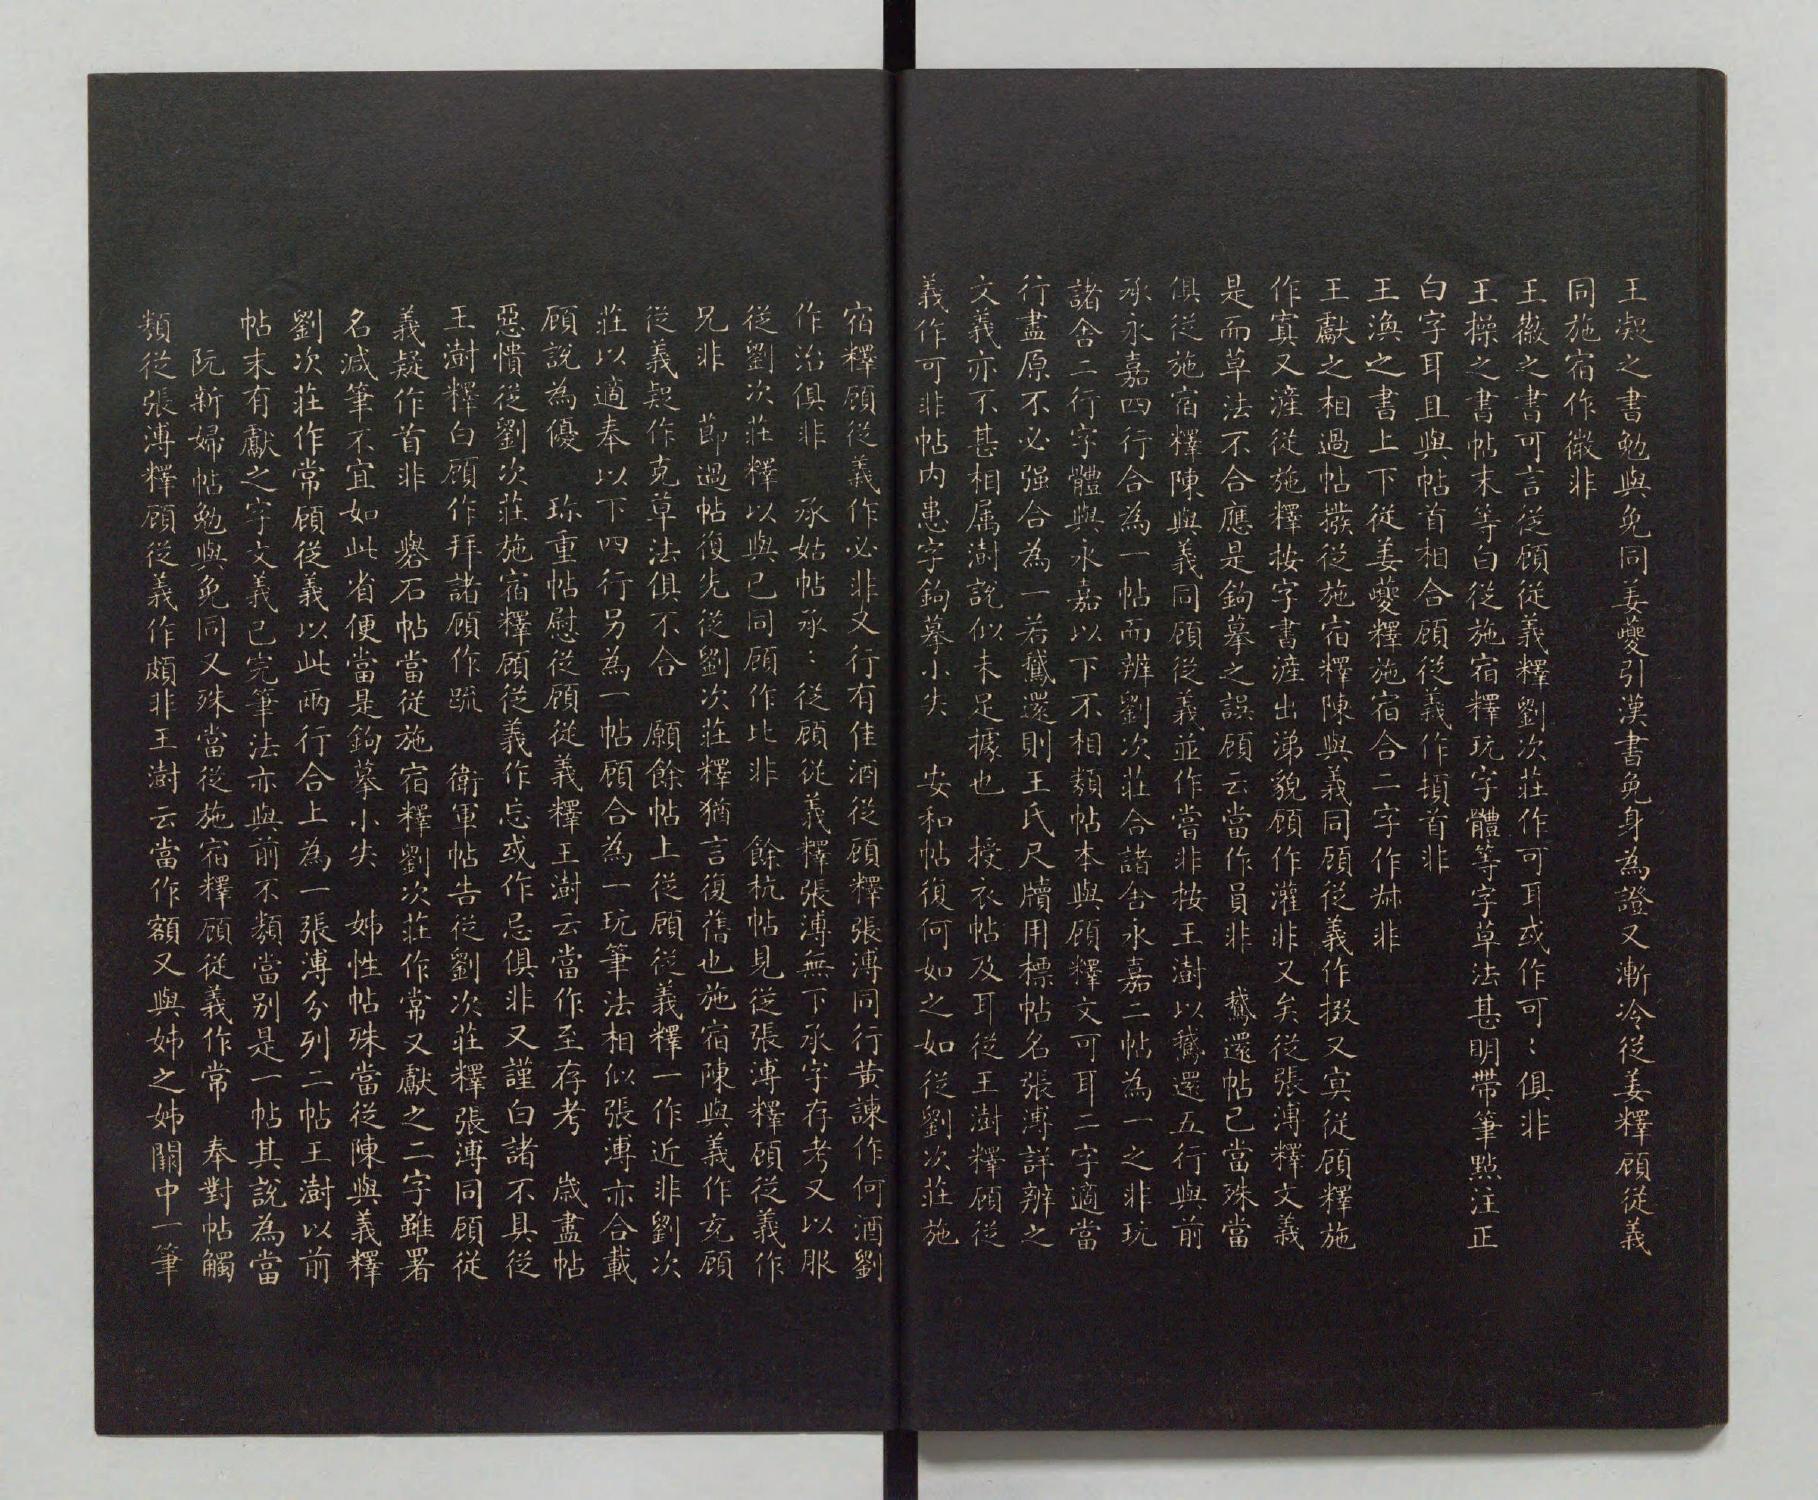 王凝之書勉與免同姜夔引漢書免身為證又漸冷從姜釋顧從義
同施宿作微非
王徽之書可言從顧從義釋劉次莊作可耳或作可〻俱非
王操之書帖末等白從施宿釋玩字體等字草法甚明帶筆點注正
白字耳且與帖首相合顧從義作頓首非
王渙之書上下從姜夔釋施宿合二字作棥非
王獻之相過帖撥從施宿釋陳與義同顧從義作掇又寘從顧釋施
作寘又漄從施釋按字書漄出涕貌顧作灌非又矣從張溥釋文義
是而草法不合應是鉤摹之誤顧云當作員非　鵞還帖已當殊當
俱從施宿釋陳與義同顧從義並作嘗非按王澍以鵞還五行與前
承永嘉四行合為一帖而辨劉次莊合諸舍永嘉二帖為一之非玩
諸舍二行字體與永嘉以下不相類帖本與顧釋文可耳二字適當
行盡原不必强合為一若鵞還則王氏尺牘用標帖名張溥詳辨之
文義亦不甚相属澍說似未足據也　授衣帖及耳從王澍釋顧從
義作可非帖内患字鉤摹小失　安和帖復何如之如從劉次莊施
宿釋顧從義作必非又行有佳酒從顧釋張溥同行黃諫作何酒劉
作治俱非　承姑帖承〻從顧從義釋張溥無下承字存考又以服
從劉次莊釋以與已同顧作比非　餘杭帖見從張溥釋顧從義作
兄非　節過帖復先從劉次莊釋猶言復舊也施宿陳與義作充顧
從義疑作克草法俱不合　願餘帖上從顧從義釋一作近非劉次
莊以適奉以下四行另為一帖顧合為一玩筆法相似張溥亦合載
顧說為優　珎重帖慰從顧從義釋王澍云當作至存考　歲盡帖
惡憒從劉次莊施宿釋顧從義作忘或作忌俱非又謹白諸不具從
王澍釋白顧作拜諸顧作䟽　衛軍帖告從劉次莊釋張溥同顧從
義疑作首非　礜石帖當從施宿釋劉次莊作常又獻之二字雖署
名減筆不宜如此省便當是鉤摹小失　姊性帖殊當從陳與義釋
劉次莊作常顧從義以此兩行合上為一張溥分列二帖王澍以前
帖末有獻之字文義已完筆法亦與前不類當别是一帖其說為當
阮新婦帖勉與免同又殊當從施宿釋顧從義作常　奉對帖觸
類從張溥釋顧從義作頗非王澍云當作額又與姊之姊闕中一筆